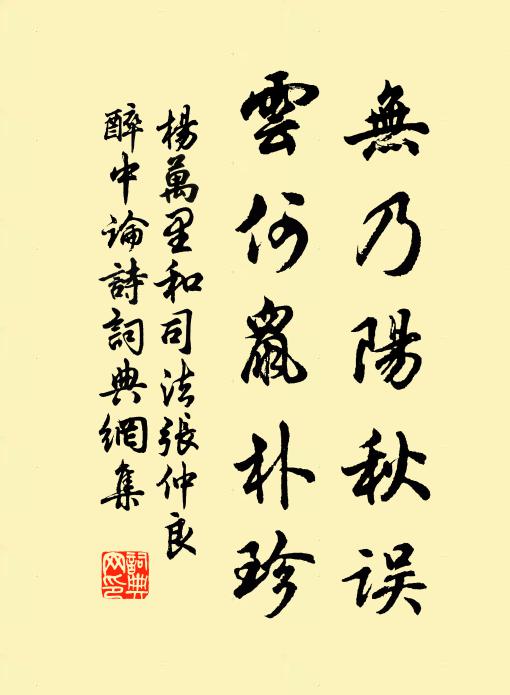 無乃陽秋误
雲何鼠朴珍
楊萬里和司法張仲良
醉中论詩詞典網集
詞典
网印